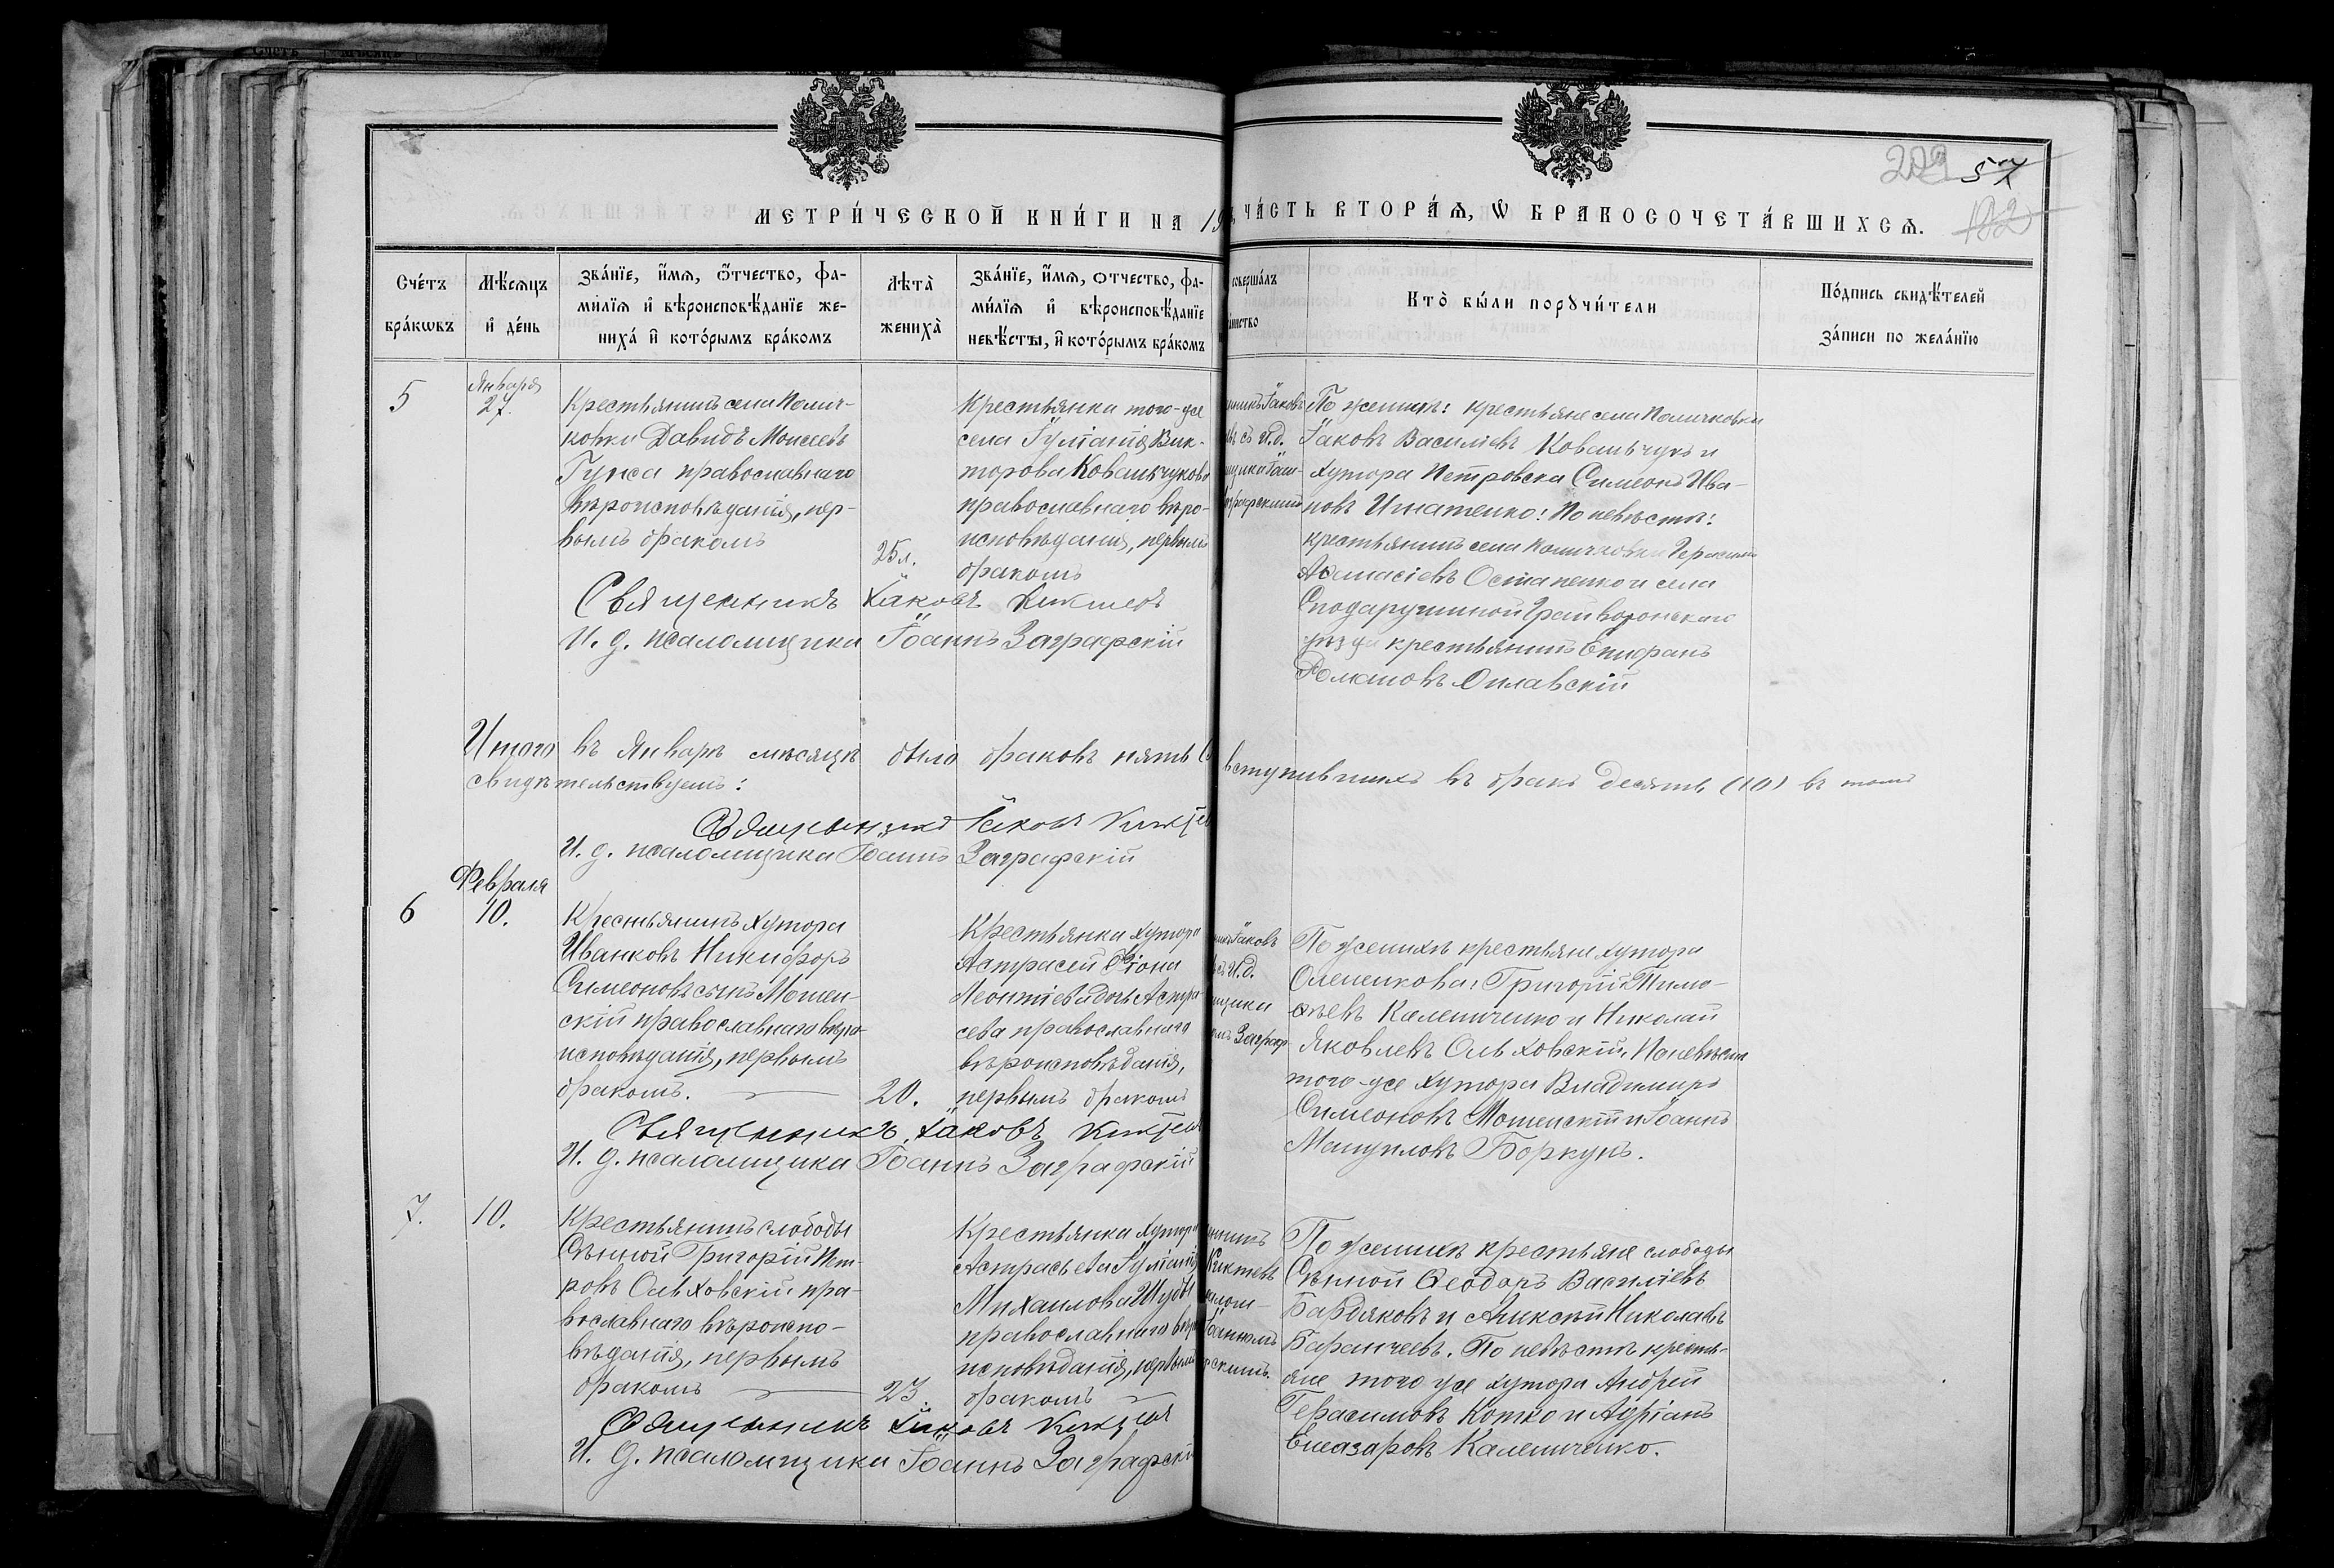 229 57
182
МЕТРИ́ЧЕСКОЙ КНИ́ГИ НА 19
ЧА́СТЬ ВТОРА́Ѧ, Ѡ҆ БРАКОСОЧЕТА́ВШИХСѦ.
Сче́тъ бра́кѡвъ
Мѣ́сѧцъ и҆ де́нь
Зва́нїе, и҆́мѧ, ѻ҆́тчество, фа-
ми́лїѧ и҆ вѣроисповѣ́данїе же-
ниха́ и҆ кото́рымъ бра́комъ
Лѣта̀ жениха̀
Зва́нїе, и҆́мѧ, ѻтчество, фа-
ми́лїѧ и҆ вѣроисповѣ́данїе
невѣ́сты, и҆ кото́рымъ бра́комъ
соверша́лъ
Кто̀ бы́ли порꙋчи́тели
По́дпись свидѣ́телей
за́писи по жела́нїю
5
Января
27.
Крестьянинъ села Помич-
ковки Давидъ Моисеевъ
Гунса православнаго
вѣроисповѣданія, пер-
вымъ бракомъ
25 л.
Крестьянка того-же
села Іуліанія Вик-
торова Ковальчукова
православнаго вѣро-
исповѣданія, первымъ
бракомъ
Іаковъ
съ И.д.
По женихѣ: крестьяне села Помичковки
Іаковъ Василіевъ Ковальчукъ и
хутора Петровска Симеонъ Ива-
новъ Игнатенко: По невѣстѣ:
крестьянинъ села Помичковки Герасимъ
Аѳанасіевъ Остапенко и села
Сподарушиной Грайворонскаго
уѣзда крестьянинъ Епифанъ
Романовъ Оплавскій
Священникъ Іаковъ Киктевъ
И. д. псаломщика Іоаннъ Заграфскій
Итого въ Январѣ мѣсяцѣ было браковъ пять
вступившихъ въ бракъ десять (10) въ томъ
свидѣтельствуемъ:
Священникъ Іаковъ Киктев
И. д. псаломщика Іоаннъ Заграфскій
Февраля
6
10.
Крестьянинъ хутора
Иванковъ Никифоръ
Симеоновъ сынъ Мошен-
скій православнаго вѣро-
исповѣданія, первымъ
бракомъ.
20.
Крестьянка хутора
Леонтіева дочь Астра-
сева православнаго
вѣроисповѣданія,
первымъ бракомъ
Іаковъ
И.д.
По женихѣ крестьяне хутора
Оленикова: Григорій Тимо-
ѳеевъ Калениченко и Николай
Яковлевъ Ольховскій, По невѣстѣ
того-же хутора Владимиръ
Симеоновъ Мошенскій и Іоаннъ
Мануиловъ Боркунъ.
Священникъ Іаковъ Киктев
И. д. псаломщика Іоаннъ Заграфскій
7.
10.
Крестьянинъ слободы
Сѣнной Григорій Пет-
ровъ Ольховскій пра-
вославнаго вѣроиспо-
вѣданія, первымъ
бракомъ
23.
Крестьянка хутора
Астрасьева Іуліанія
Михаилова
православнаго вѣро
исповѣданія, первымъ
бракомъ
Киктевъ
Іоанномъ
По женихѣ крестьяне слободы
Сѣнной Ѳеодоръ Василіевъ
Бардяковъ и Алексѣй Николаевъ
Баранчеевъ. По невѣстѣ крестья-
яне того же хутора Андрей
Герасимовъ Котко и Адріанъ
Елеазаровъ Калениченко.
Священникъ Іаковъ Киктев
И. д. псаломщика Іоаннъ Заграфскі